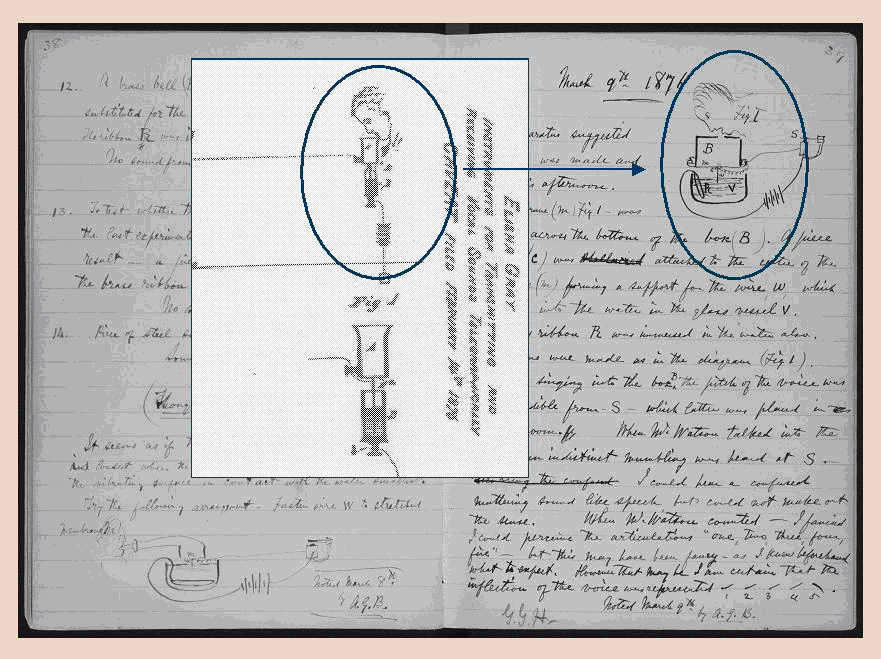 38
12. A brass bell
substituted for the
The ribbon R was
No sound from
13. To test whether
the last experiment
result — a
the brass ribbon
No
14. Piece of steel
(Thoug
It seems as if
when the
the vibrating surface in contact with the water
Try the following arrangement. Fasten wire W to stretched
membrane
m
Noted March 8th
by A.G.B.
Fig 1
ELISHA GRAY
INSTRUMENTS FOR TRANSMITTING AND
RECEIVING VOCAL SOUNDS TELEGRAPHICALLY
CAVEAT FILED FEBRUARY 14th 1876
39
March 9th 1876
Fig 1
S
B
m
W
R V
aratus suggested
was made and
s afternoon.
(m) Fig 1 — was
across the bottom of the box (B). A piece
(c) was attached to the centre of the
(m) forming a support for the wire W, which
into the water in the glass vessel V.
ribbon R was immersed in the water also.
ns were made as in the diagram (Fig 1).
singing into the box B, the pitch of the voice was
dible from S — which latter was placed in
room. When Mr Watson talked into the
an indistinct mumbling was heard at S. —
I could hear a confused
muttering sound like speech but could not make out
the sense. When Mr Watson counted — I fancied
I could perceive the articulations "one, two, three, four,
five" — but this may have been fancy — as I knew beforehand
what to expect. However that may be I am certain that the
inflection of the voice was represented
1 2 3 4 5
Noted March 9th by A.G.B.
G.G.H.